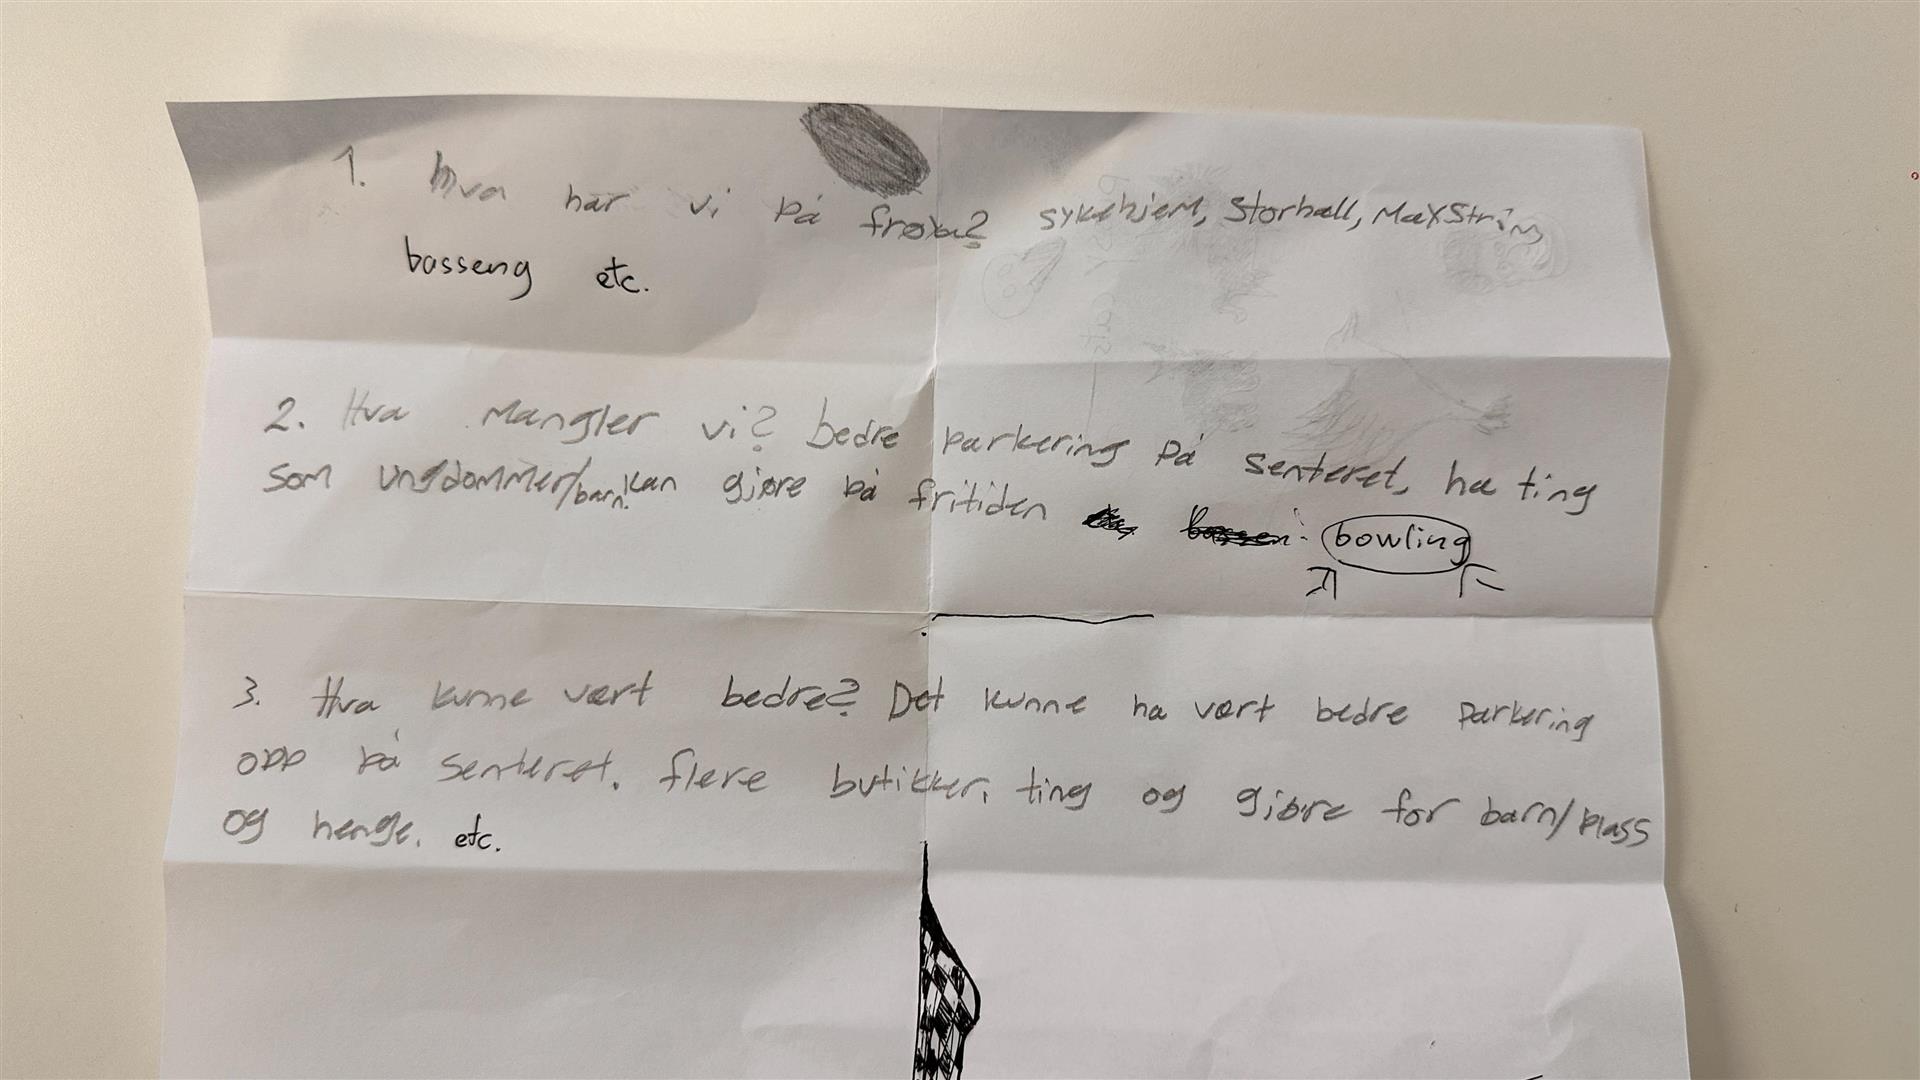 1. Hva har vi på frøya? sykehjem, Storhall, MaxString
basseng etc.
2. Hva Mangler vi? bedre parkering på senteret, ha ting
som ungdommer/barn kan gjøre på fritiden bowling
3. Hva kunne vært bedre? Det kunne ha vært bedre parkering
opp på senteret. flere butikker, ting og gjøre for barn/plass
og henge. etc.